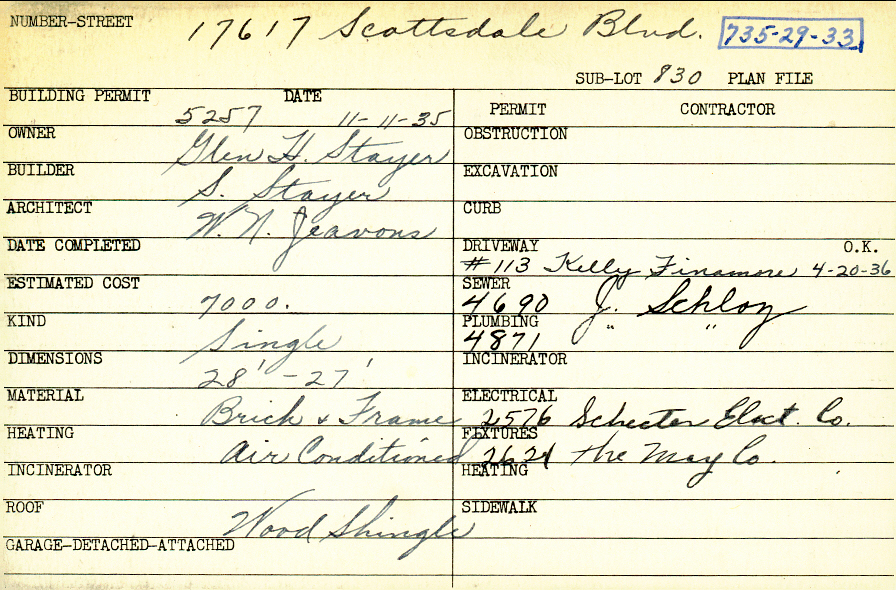 NUMBER-STREET 17617 Scottsdale Blvd. 735-29-33
SUB-LOT 830 PLAN FILE
BUILDING PERMIT 5257 DATE 11-11-35
OWNER Glen H. Stayer
BUILDER S. Stayer
ARCHITECT W. N. Jeavons
DATE COMPLETED
ESTIMATED COST 7000.
KIND Single
DIMENSIONS 28' - 27'
MATERIAL Brick & Frame
HEATING Air Conditioned
INCINERATOR
ROOF Wood Shingle
GARAGE-DETACHED-ATTACHED
PERMIT CONTRACTOR
OBSTRUCTION
EXCAVATION
CURB
DRIVEWAY O.K.
#113 Kelly Finamore 4-20-36
SEWER
4690 J. Schloz
PLUMBING
4871 " "
INCINERATOR
ELECTRICAL
2576 Schecter Elect. Co.
FIXTURES
2624 The May Co.
HEATING
SIDEWALK